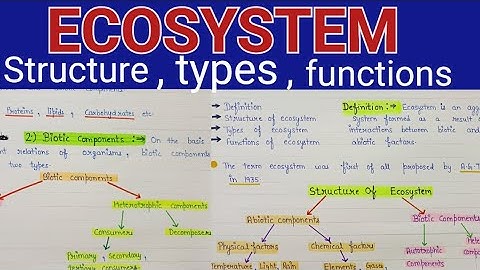 ECOSYSTEM
Structure , types , functions
Proteins, lipids, Carbohydrates etc.
2) Biotic Components :→ On the basis
relations of organisms, biotic components
two types.
Biotic components
Heterotrophic Components
Consumers
Decomposers
Primary, secondary,
tertiary consumers.
→ Definition
→ Structure of ecosystem
→ Types of ecosystem
→ Functions of ecosystem
Definition:→ Ecosystem is an
System formed as a result
interactions between biotic and
abiotic factors.
→ The term ecosystem was first of all proposed by A.G.
in 1935
Structure Of Ecosystem
Abiotic components
Biotic Components
Physical factors
Chemical factors
Autotrophic
Components
Temperature, Light, Rain
Elements, Gases,